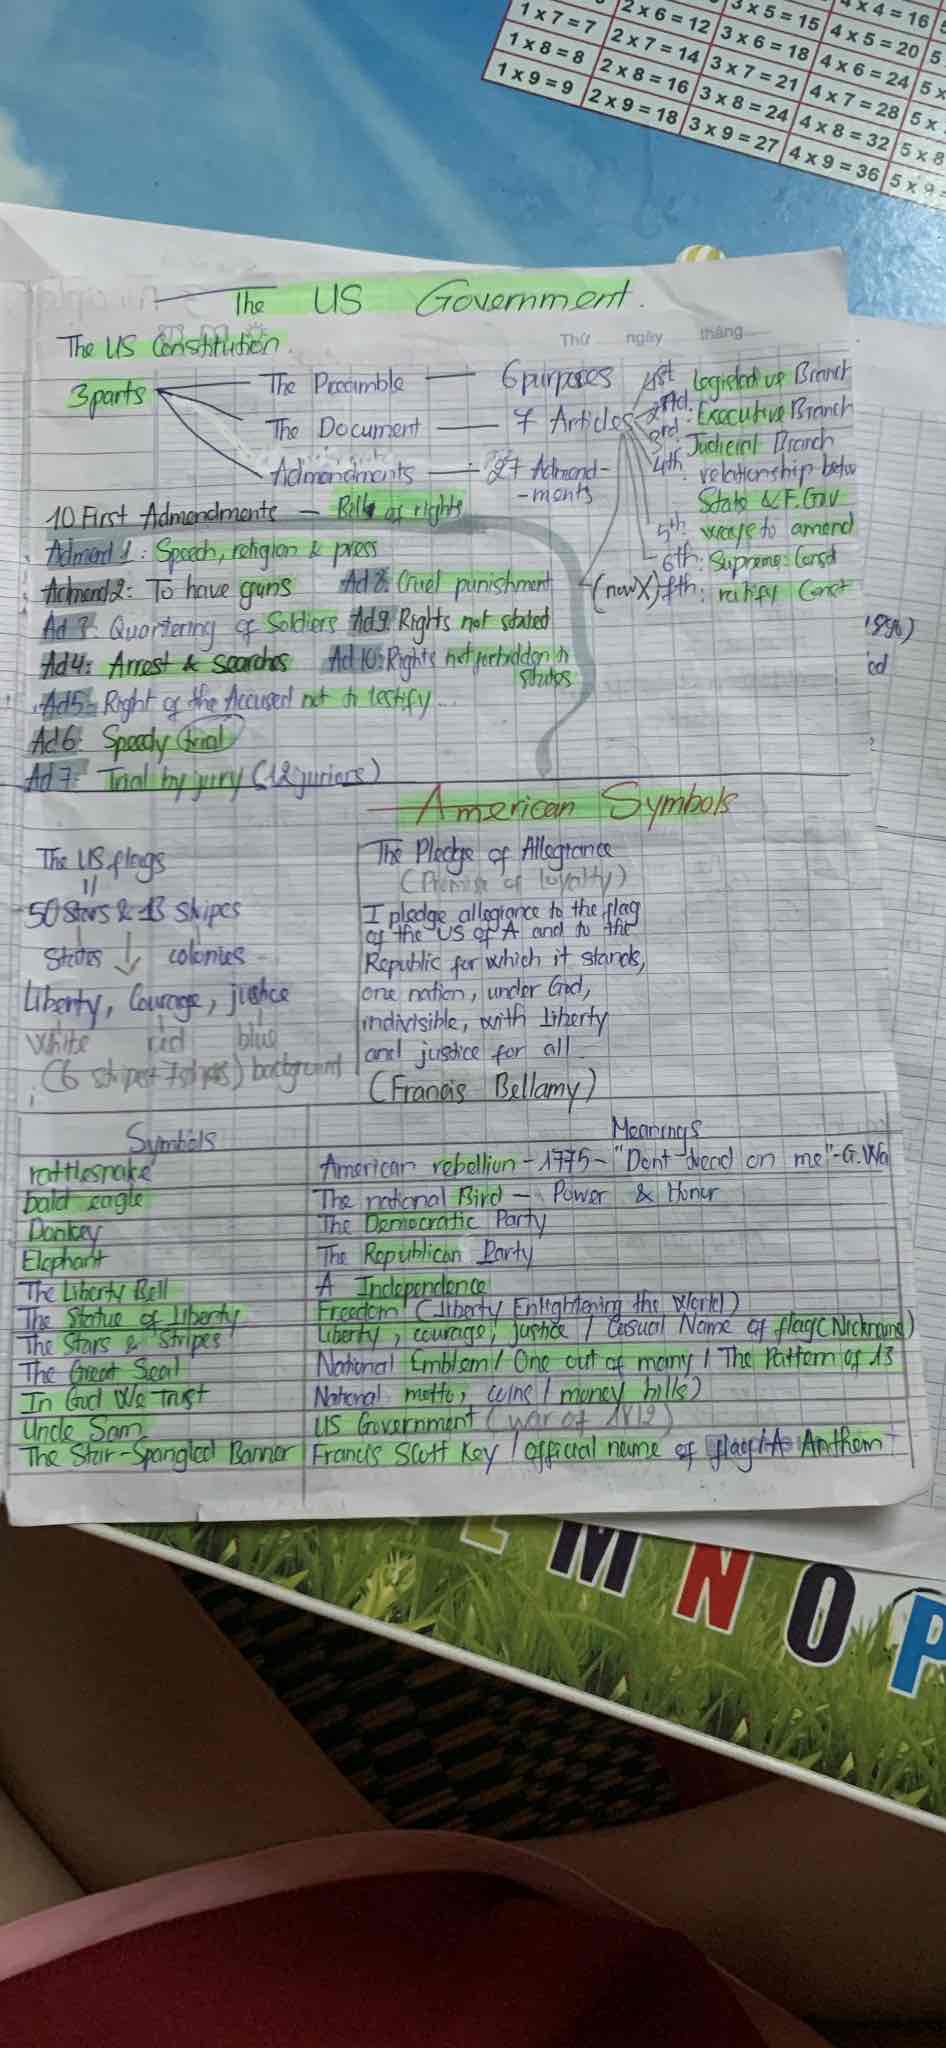 1 x 7 = 7 2 x 6 = 12 3 x 5 = 15 4 x 4 = 16
1 x 8 = 8 2 x 7 = 14 3 x 6 = 18 4 x 5 = 20 5
1 x 9 = 9 2 x 8 = 16 3 x 7 = 21 4 x 6 = 24 5 x
2 x 9 = 18 3 x 8 = 24 4 x 7 = 28 5 x
3 x 9 = 27 4 x 8 = 32 5 x 8
4 x 9 = 36 5 x 9 =
The US Government.
Thứ ngày tháng
The US Constitution.
3 parts
The Preamble — 6 purposes
The Document — 7 Articles
Admendments — 27 Admend-
-ments
1st Legislative Branch
2nd: Executive Branch
3rd: Judicial Branch
4th: relationship betw
State & F. Gov
5th: ways to amend
6th: Supreme Const
(now X) 7th: ratify Const
10 First Admendments — Bill of rights
Admend 1: Speech, religion & press
Admend 2: To have guns Ad 8: Cruel punishment
Ad 3: Quartering of Soldiers Ad 9: Rights not stated
Ad 4: Arrest & searches Ad 10: Rights not forbidden to
states
Ad 5: Right of the Accused not to testify...
Ad 6: Speedy trial
Ad 7: Trial by jury (12 juriors)
American Symbols
The US flags
50 stars & 13 stripes
states colonies
Liberty, Courage, justice
white red blue
(6 stripes 7 stripes) background
The Pledge of Allegiance
(Promise of loyalty)
I pledge allegiance to the flag
of the US of A and to the
Republic for which it stands,
one nation, under God,
indivisible, with liberty
and justice for all
(Francis Bellamy)
Symbols Meanings
rattlesnake American rebellion - 1775 - "Dont tread on me" - G.Wa
bald eagle The national Bird — Power & Honor
Donkey The Democratic Party
Elephant The Republican Party
The Liberty Bell A Independence
The Statue of Liberty Freedom (Liberty Enlightening the World)
The Stars & Stripes Liberty, courage, justice / Casual Name of flag (Nickname)
The Great Seal National Emblem / One out of many / The Pattern of 13
In God We Trust National motto, coins / money bills)
Uncle Sam US Government (War of 1812)
The Star-Spangled Banner Francis Scott Key / official name of flag / A Anthem
M N O P